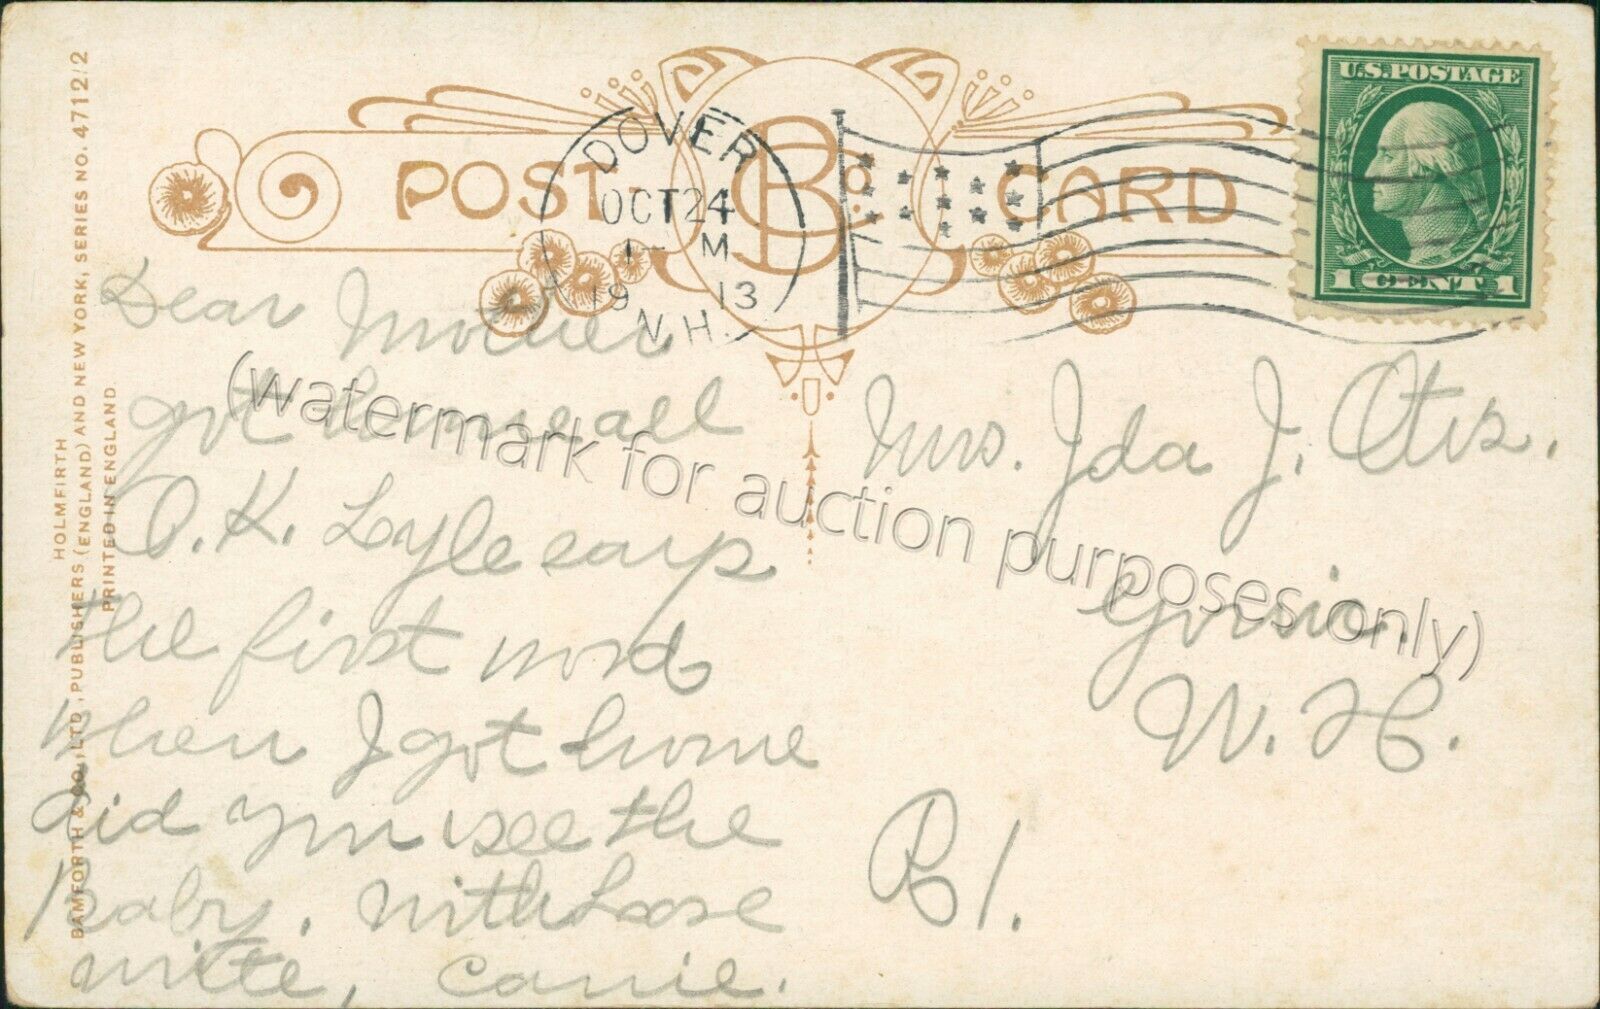 HOLMFIRTH
BAMFORTH & CO., LTD., PUBLISHERS (ENGLAND) AND NEW YORK, SERIES NO. 4712/2
PRINTED IN ENGLAND
POST CARD
B Co.
DOVER
OCT 24
1 - M
19 13
N.H.
U.S. POSTAGE
1 CENT 1
Dear Mother
got home all
O.K. Lyle says
the first word
when I got home
did you see the
Baby. with
write, Carrie.
Mrs. Ida J. Otis.
Gonic.
N. H.
R 1.
(watermark for auction purposes only)